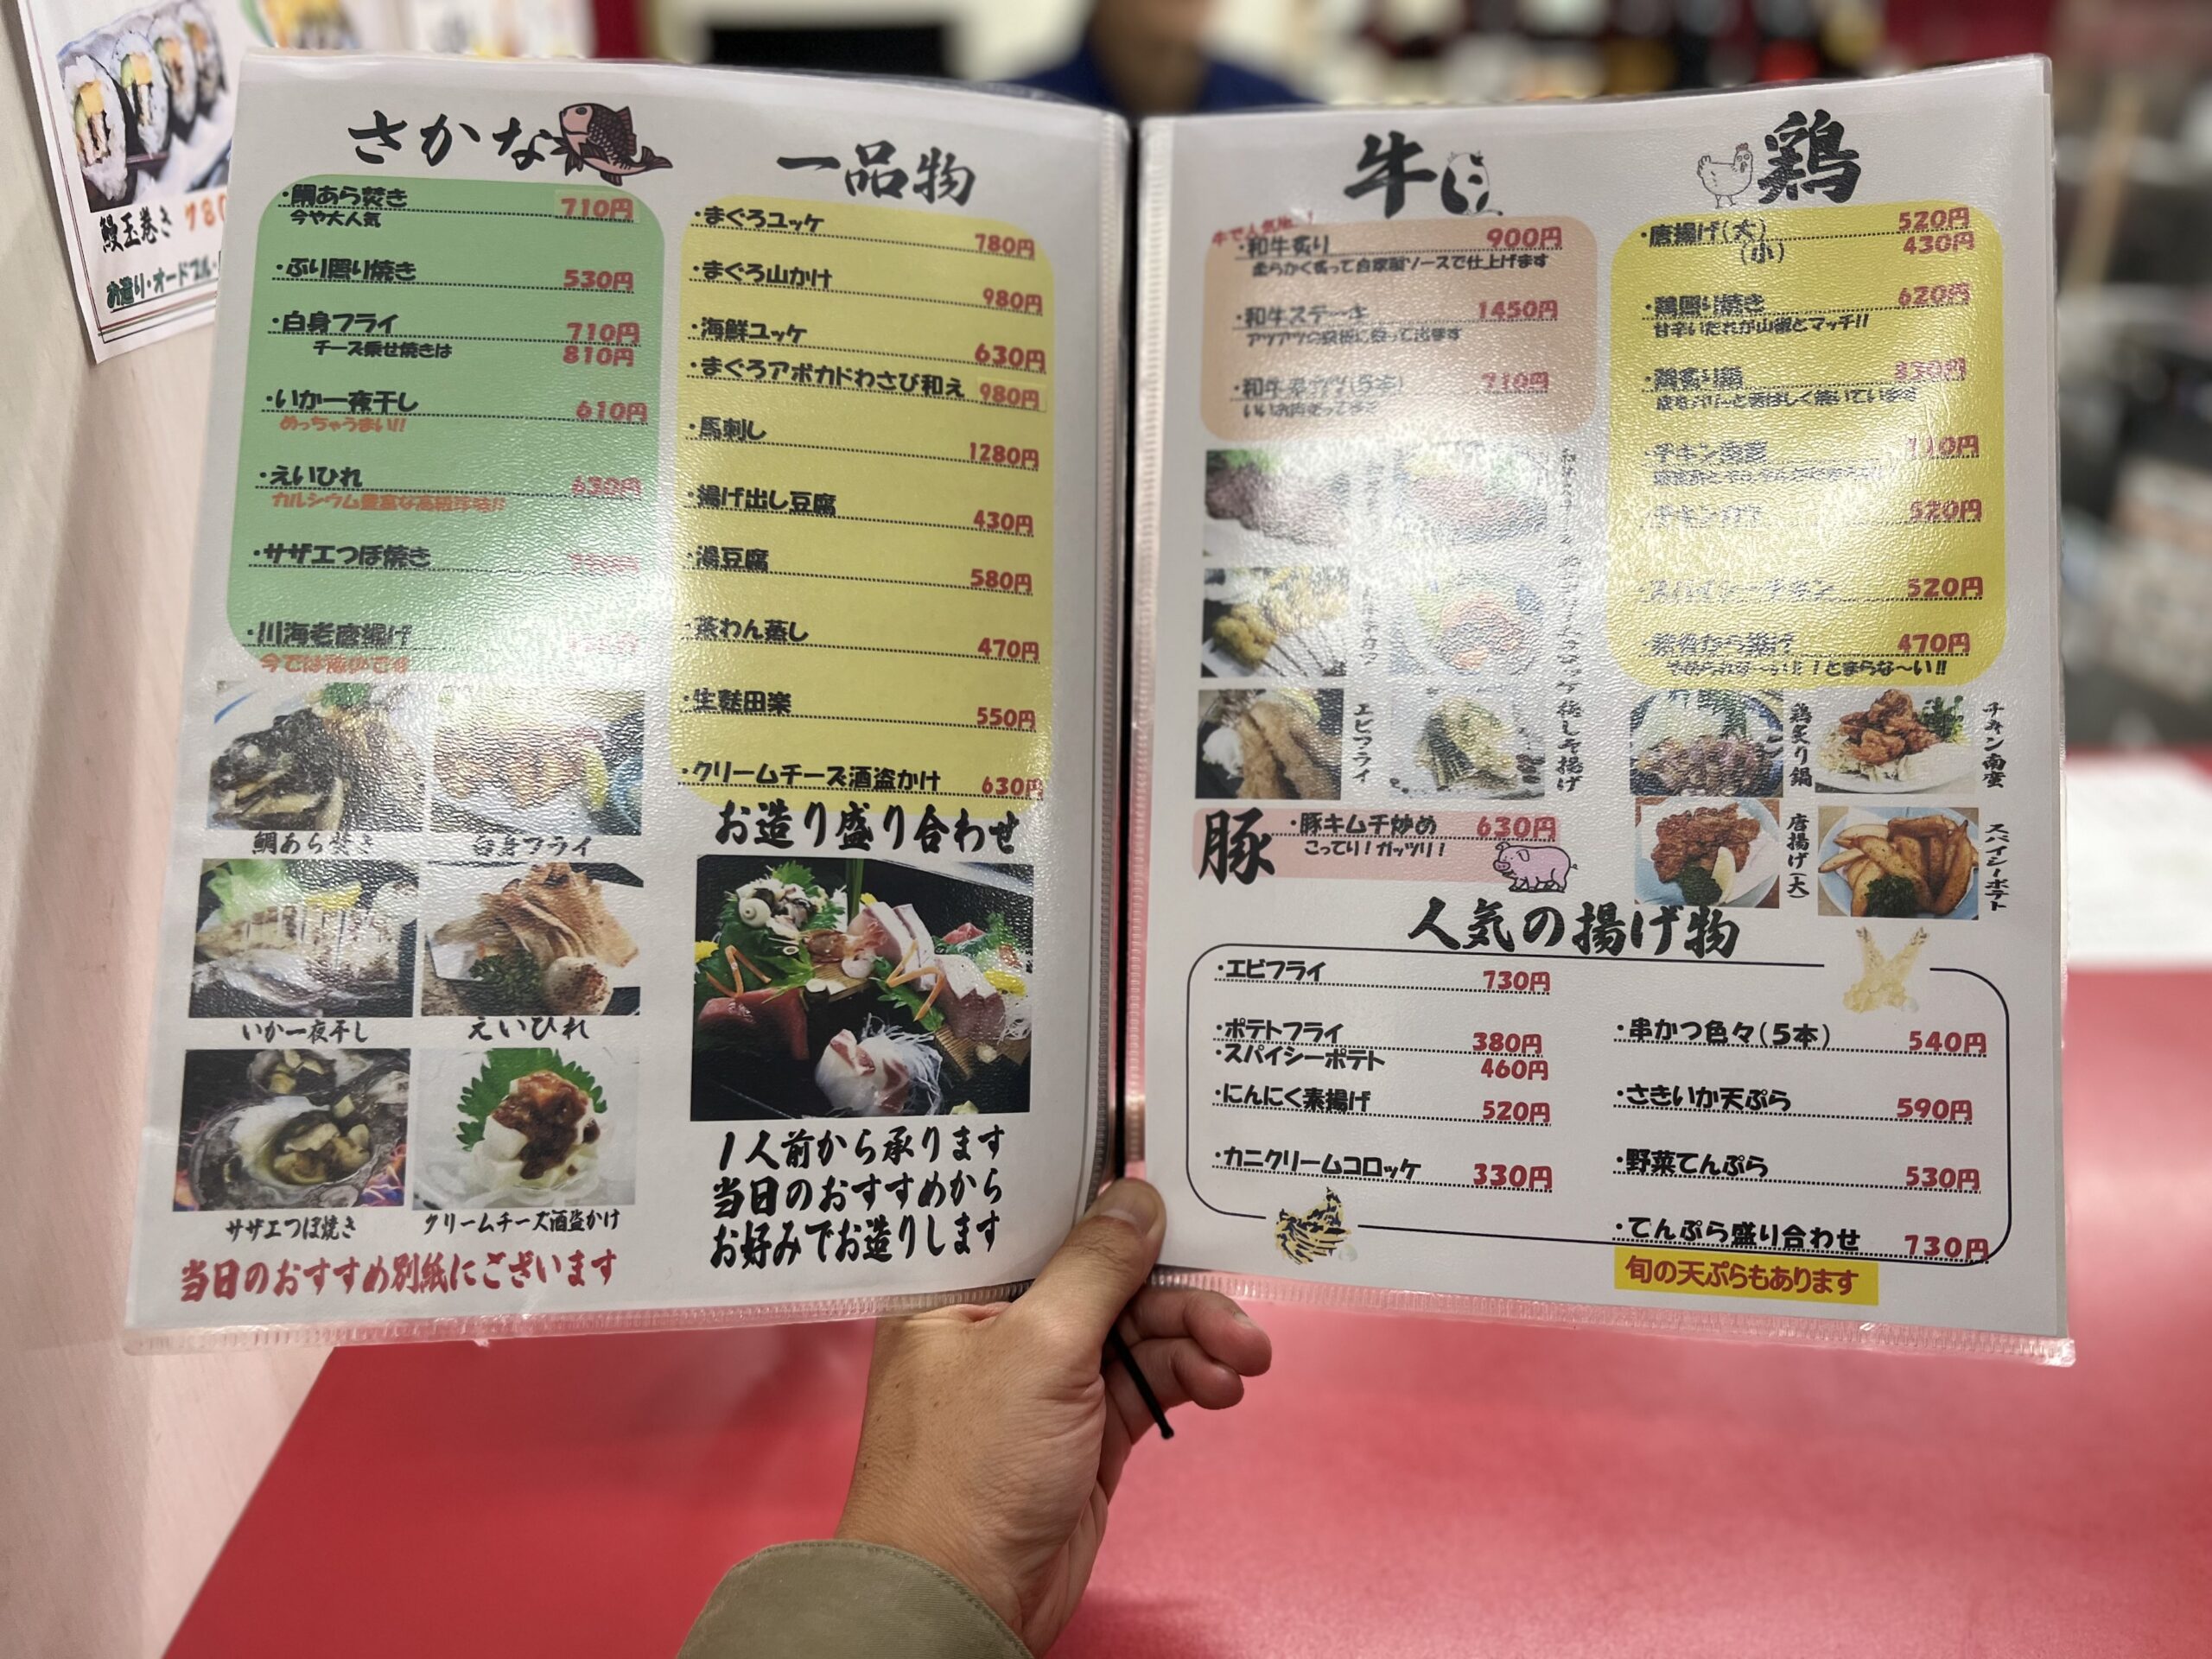 鰻玉巻き 780
お造り・オードブル・
さかな
・鯛あら焚き 710円
今や大人気
・ぶり照り焼き 530円
・白身フライ 710円
チーズ乗せ焼きは 810円
・いか一夜干し 610円
めっちゃうまい!!
・えいひれ 630円
カルシウム豊富な高級珍味!!
・サザエつぼ焼き
・川海老唐揚げ
鯛あら焚き
白身フライ
いか一夜干し
えいひれ
サザエつぼ焼き
クリームチーズ酒盗かけ
当日のおすすめ別紙にございます
一品物
・まぐろユッケ 780円
・まぐろ山かけ 980円
・海鮮ユッケ 630円
・まぐろアボカドわさび和え 980円
・馬刺し 1280円
・揚げ出し豆腐 430円
・湯豆腐 580円
・茶わん蒸し 470円
・生麩田楽 550円
・クリームチーズ酒盗かけ 630円
お造り盛り合わせ
1人前から承ります
当日のおすすめから
お好みでお造りします
牛
・和牛炙り 900円
柔らかく炙って自家製ソースで仕上げます
・和牛ステーキ 1450円
アツアツの鉄板に乗って出ます
・和牛串カツ(5本) 710円
エビフライ
豚
・豚キムチ炒め 630円
こってり!ガッツリ!
鶏
・唐揚げ(大) 520円
(小) 430円
・鶏照り焼き 620円
甘辛いたれが山椒とマッチ!!
・鶏炙り鍋
皮をパリーと香ばしく焼いています
・チキン南蛮
・チキンカツ 520円
・スパイシーチキン 520円
・軟骨から揚げ 470円
やめられな~い!!とまらな~い!!
鶏炙り鍋
チキン南蛮
唐揚げ(大)
スパイシーポテト
人気の揚げ物
・エビフライ 730円
・ポテトフライ 380円
・スパイシーポテト 460円
・にんにく素揚げ 520円
・カニクリームコロッケ 330円
・串かつ色々(5本) 540円
・さきいか天ぷら 590円
・野菜てんぷら 530円
・てんぷら盛り合わせ 730円
旬の天ぷらもあります